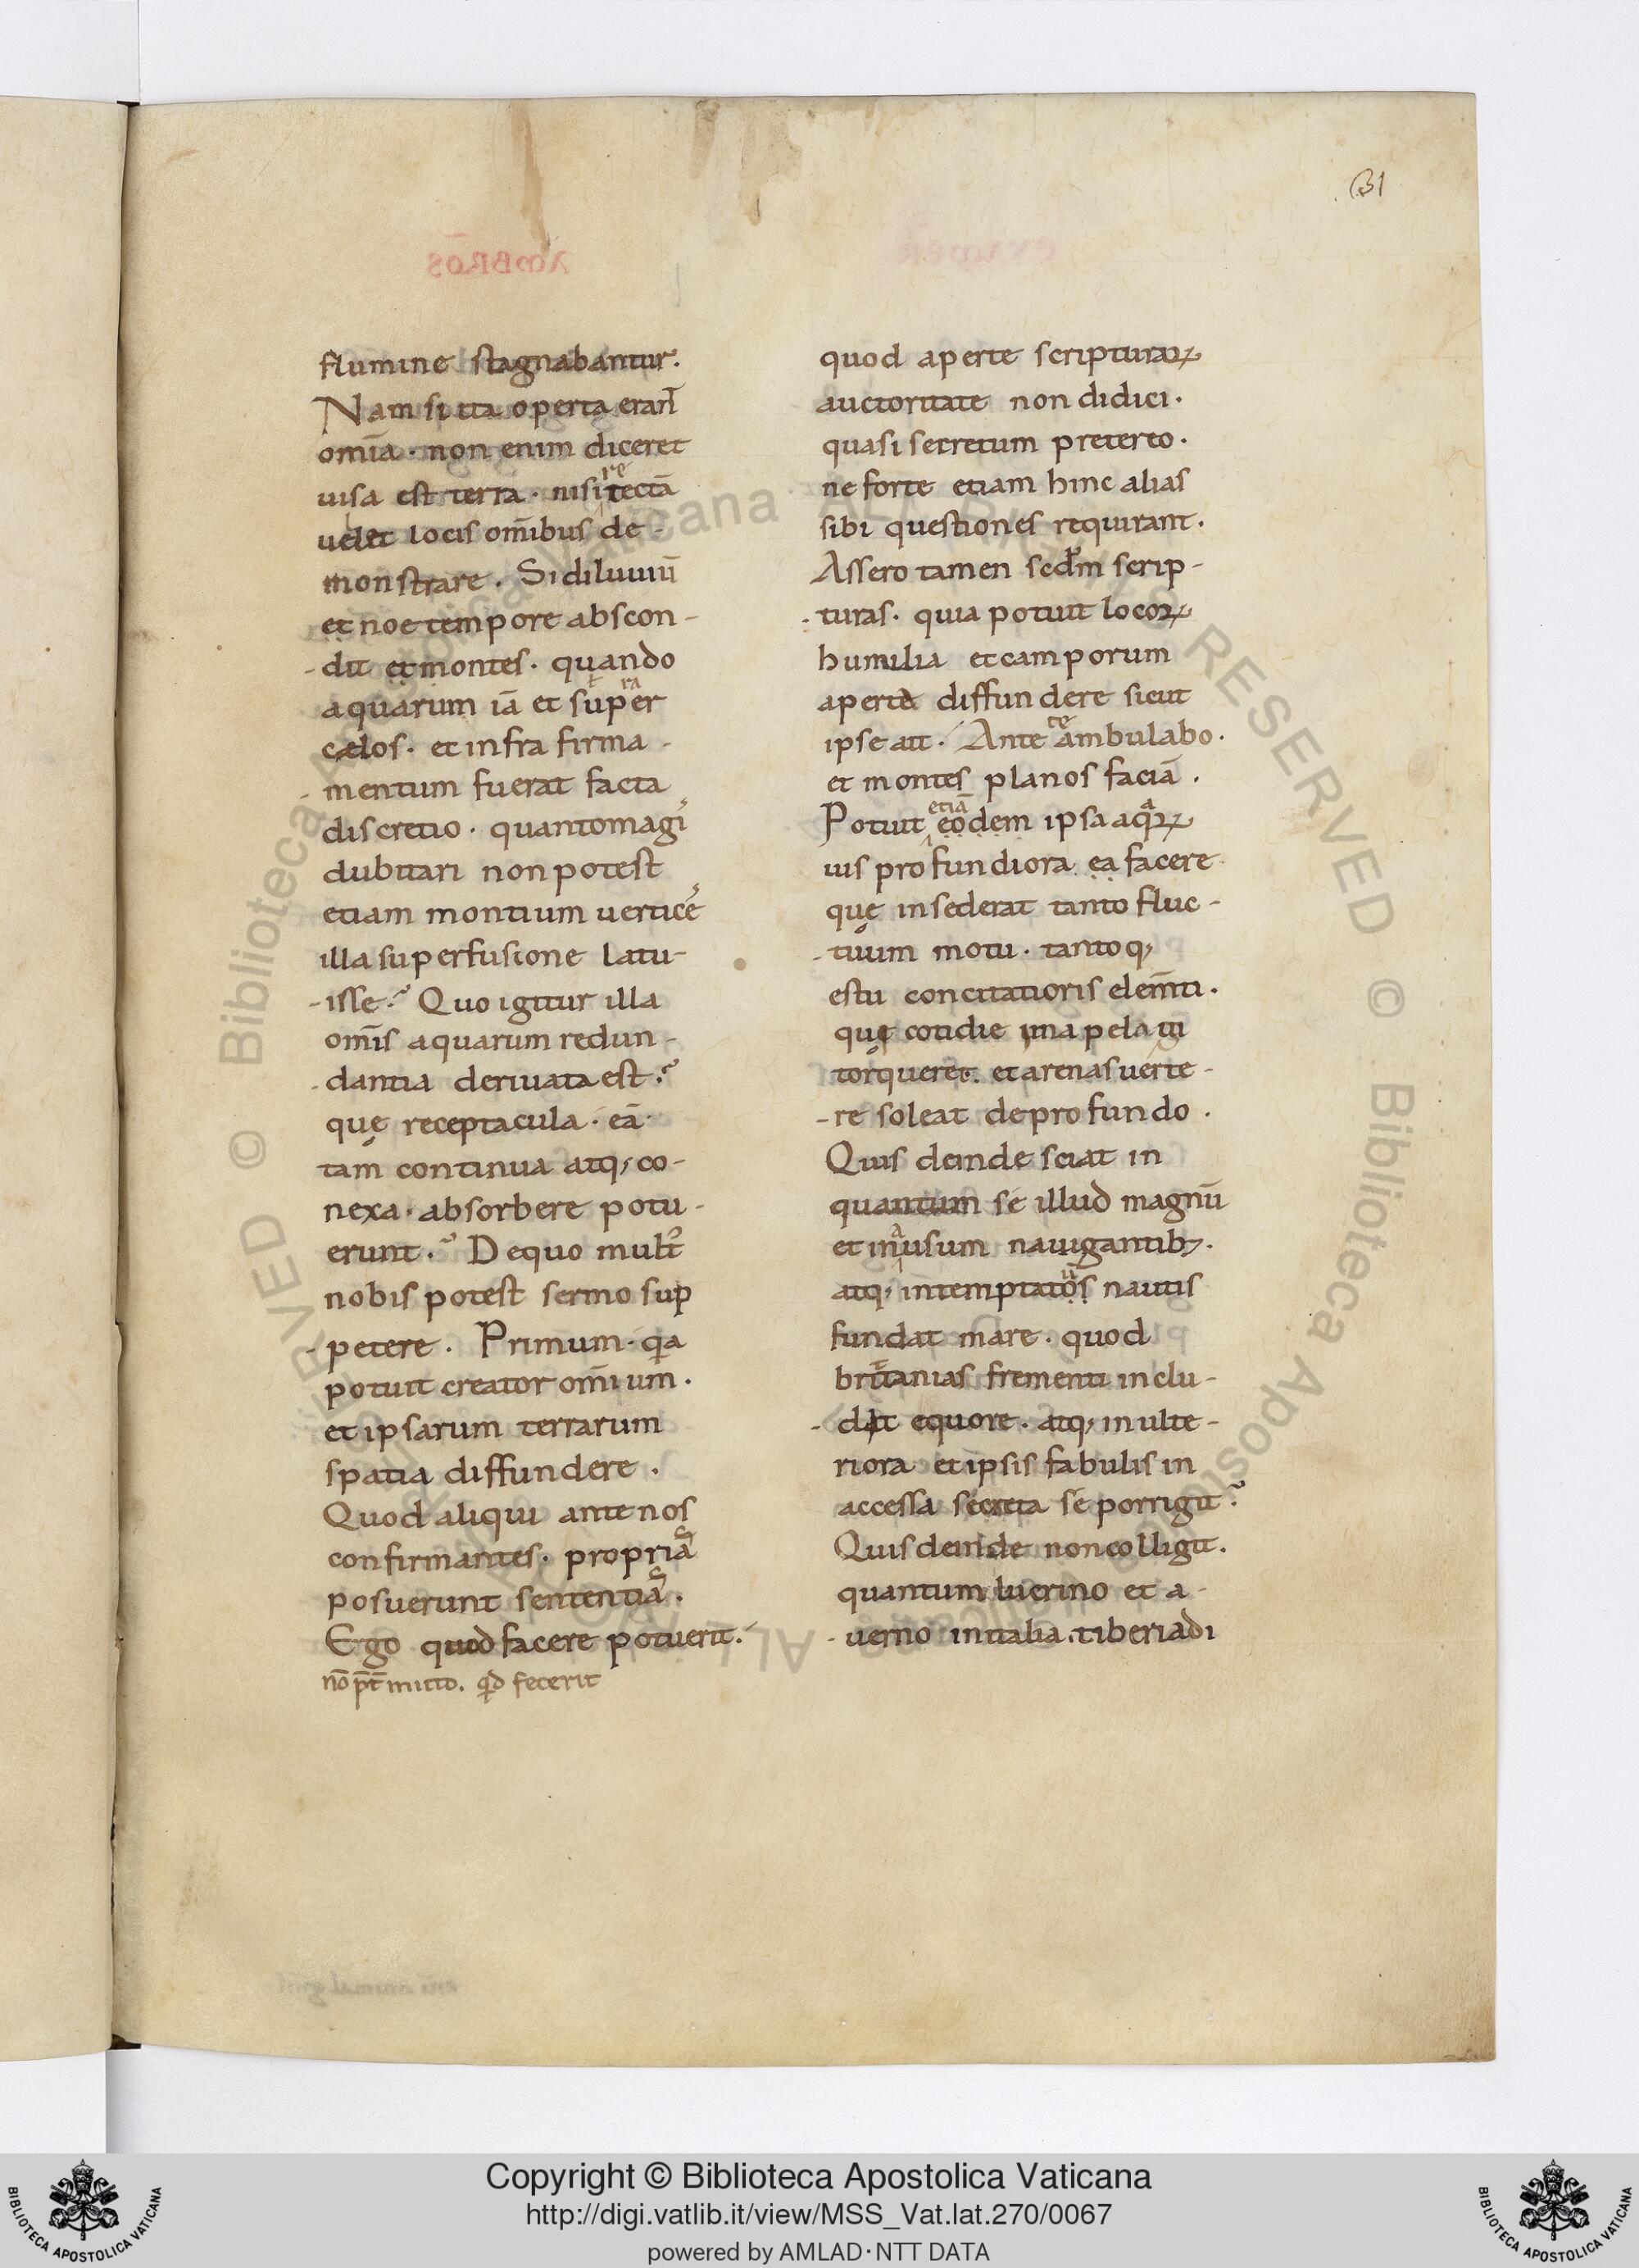 31
flumine stagnabantur.
Nam si ita operta erant̄
om̄ia · non enim diceret
uisa est terra · nisi retectā
uelet locis om̄ibus de-
monstrare. Si diluuiū
et noe tempore abscon-
-dit et montes · quando
aquarum iā et supra
cælos · et infra firma-
-mentum fuerat facta
discretio · quantomagis
dubitari non potest
etiam montium uertices
illa superfusione latu-
-isse? Quo igitur illa
om̄is aquarum redun-
-dantia deriuata est?
quę receptacula · eā
tam continua atq; co-
nexa · absorbere potu-
erunt? De quo mult᷒
nobis potest sermo sup
-petere. Primum · qa
potuit creator om̄ium.
et ipsarum terrarum
spatia diffundere.
Quod aliqui ante nos
confirmantes · propriā
posuerunt sententiā.
Ergo quod facere potuerit.
nō p̄t mitto. qd fecerit
quod aperte scripturaꝝ
auctoritate non didici.
quasi secretum pretereo.
ne forte etiam hinc alias
sibi questiones requirant.
Assero tamen scdm scrip-
-turas · quia potuit locoꝝ
humilia et camporum
aperta diffundere sicut
ipse ait. Ante te ambulabo.
et montes planos faciā.
Potuit etiā eodem ipsa aquaꝝ
uis profundiora ea facere
quę insederat tanto fluc-
-tuum motu · tantoq;
estu concitatioris elem̄ti.
quę cotidie ima pelagi
torqueret. et arenas uerte-
-re soleat de profundo.
Quis deinde sciat in
quantum se illud magnū
et inausum nauigantib;.
atq; intemptatūs nautis
fundat mare · quod
britanias frementi inclu-
-dit equore · atq; in ulte-
riora et ipsis fabulis in
accessa secreta se porrigit?
Quis deinde non colligit.
quantum luerino et a-
-uerno in italia. tiberiadi
Copyright © Biblioteca Apostolica Vaticana
http://digi.vatlib.it/view/MSS_Vat.lat.270/0067
powered by AMLAD·NTT DATA
BIBLIOTECA APOSTOLICA VATICANA
BIBLIOTECA APOSTOLICA VATICANA